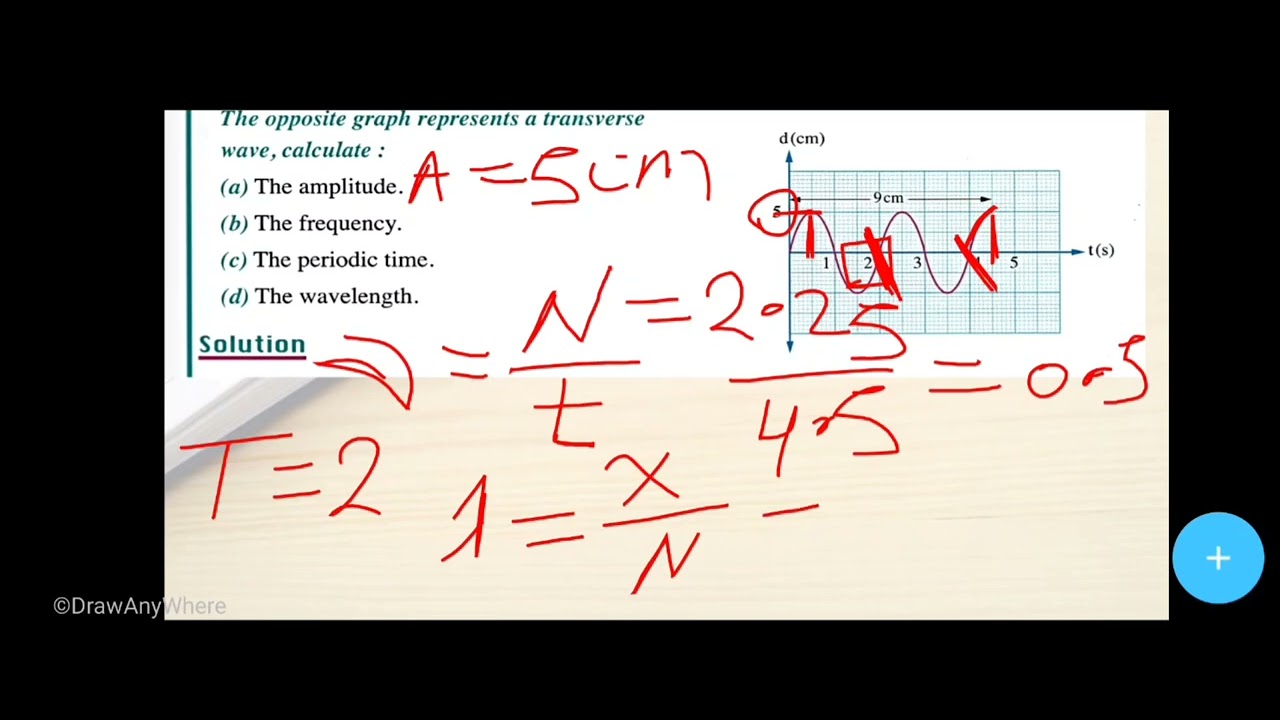 The opposite graph represents a transverse
wave, calculate :
(a) The amplitude. A = 5cm
(b) The frequency.
(c) The periodic time.
(d) The wavelength.
Solution
d(cm)
5
9 cm
1 2 3 5
t(s)
ν = N/t = 2.25/4.5 = 0.5
T = 2
λ = x/N =
+
©DrawAnyWhere